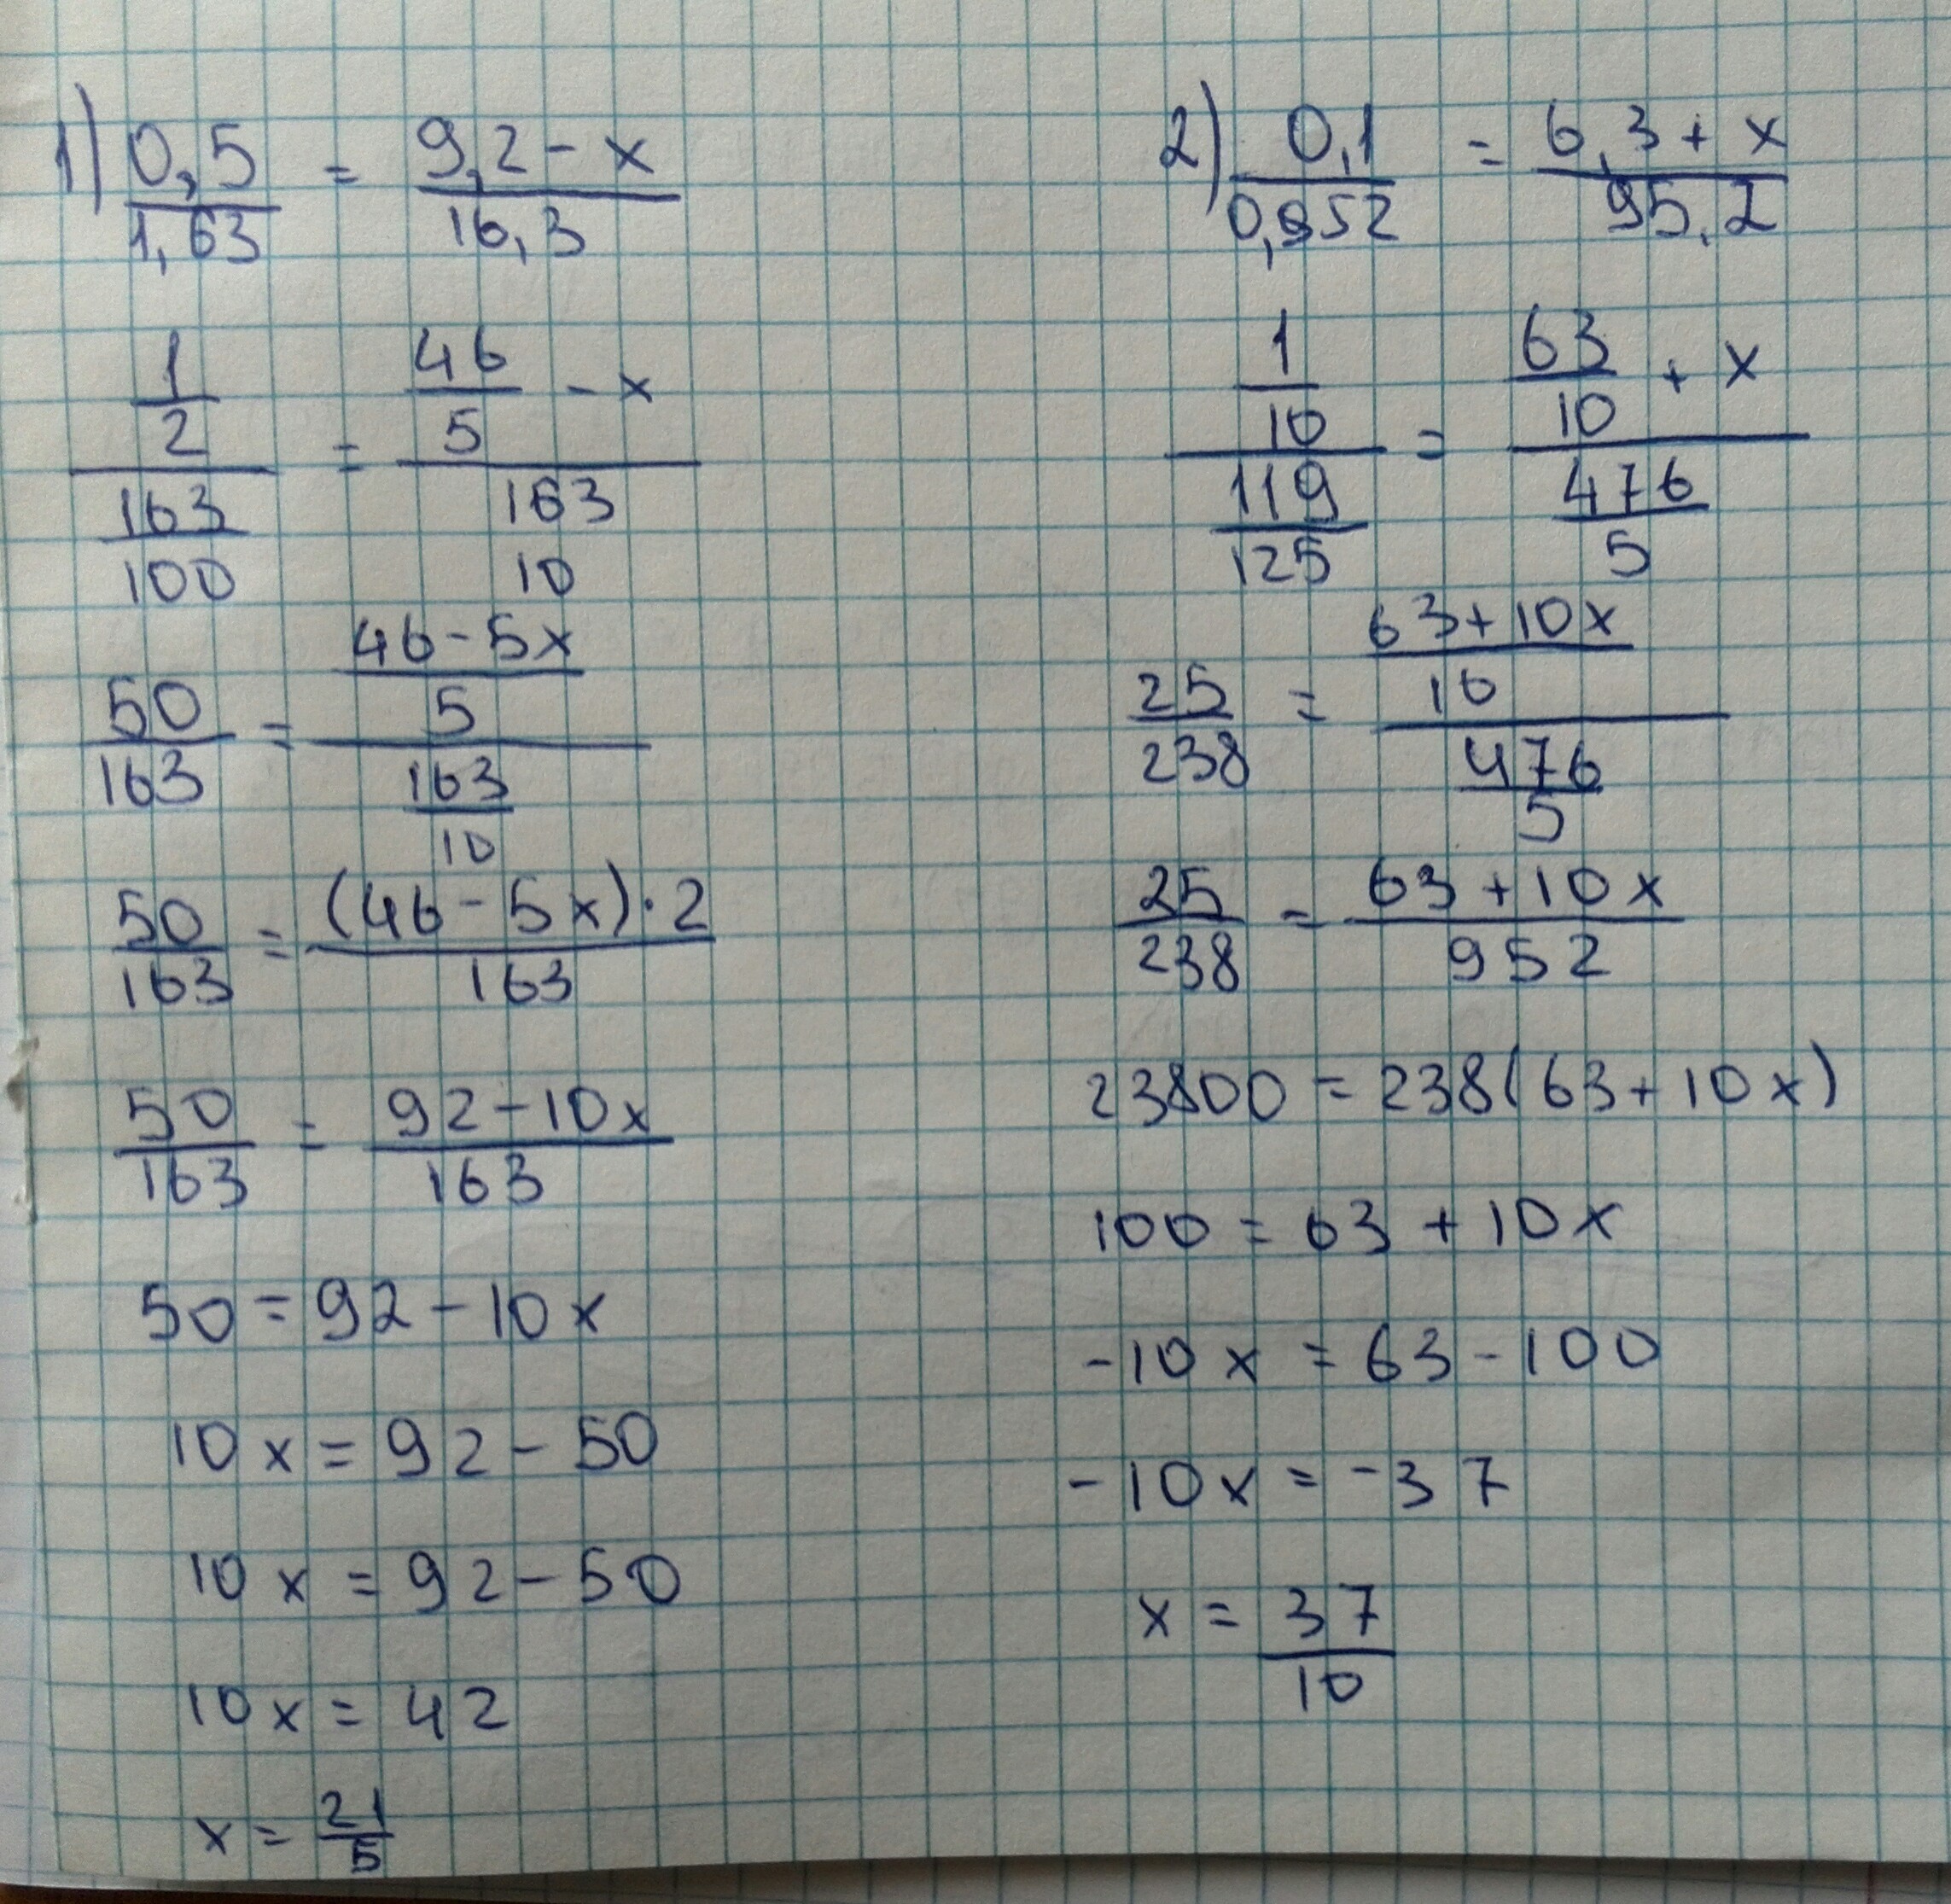 1) 0,5/1,63 = 9,2 - x/16,3
1/2 / 163/100 = 46/5 - x / 163 10
50/163 = 46 - 5x/5 / 163/10
50/163 = (46 - 5x) · 2/163
50/163 = 92 - 10x/163
50 = 92 - 10x
10x = 92 - 50
10x = 92 - 50
10x = 42
x = 21/5
2) 0,1/0,952 = 6,3 + x/95,2
1/10 / 119/125 = 63/10 + x / 476/5
25/238 = 63 + 10x/10 / 476/5
25/238 = 63 + 10x/952
23800 = 238(63 + 10x)
100 = 63 + 10x
-10x = 63 - 100
-10x = -37
x = 37/10